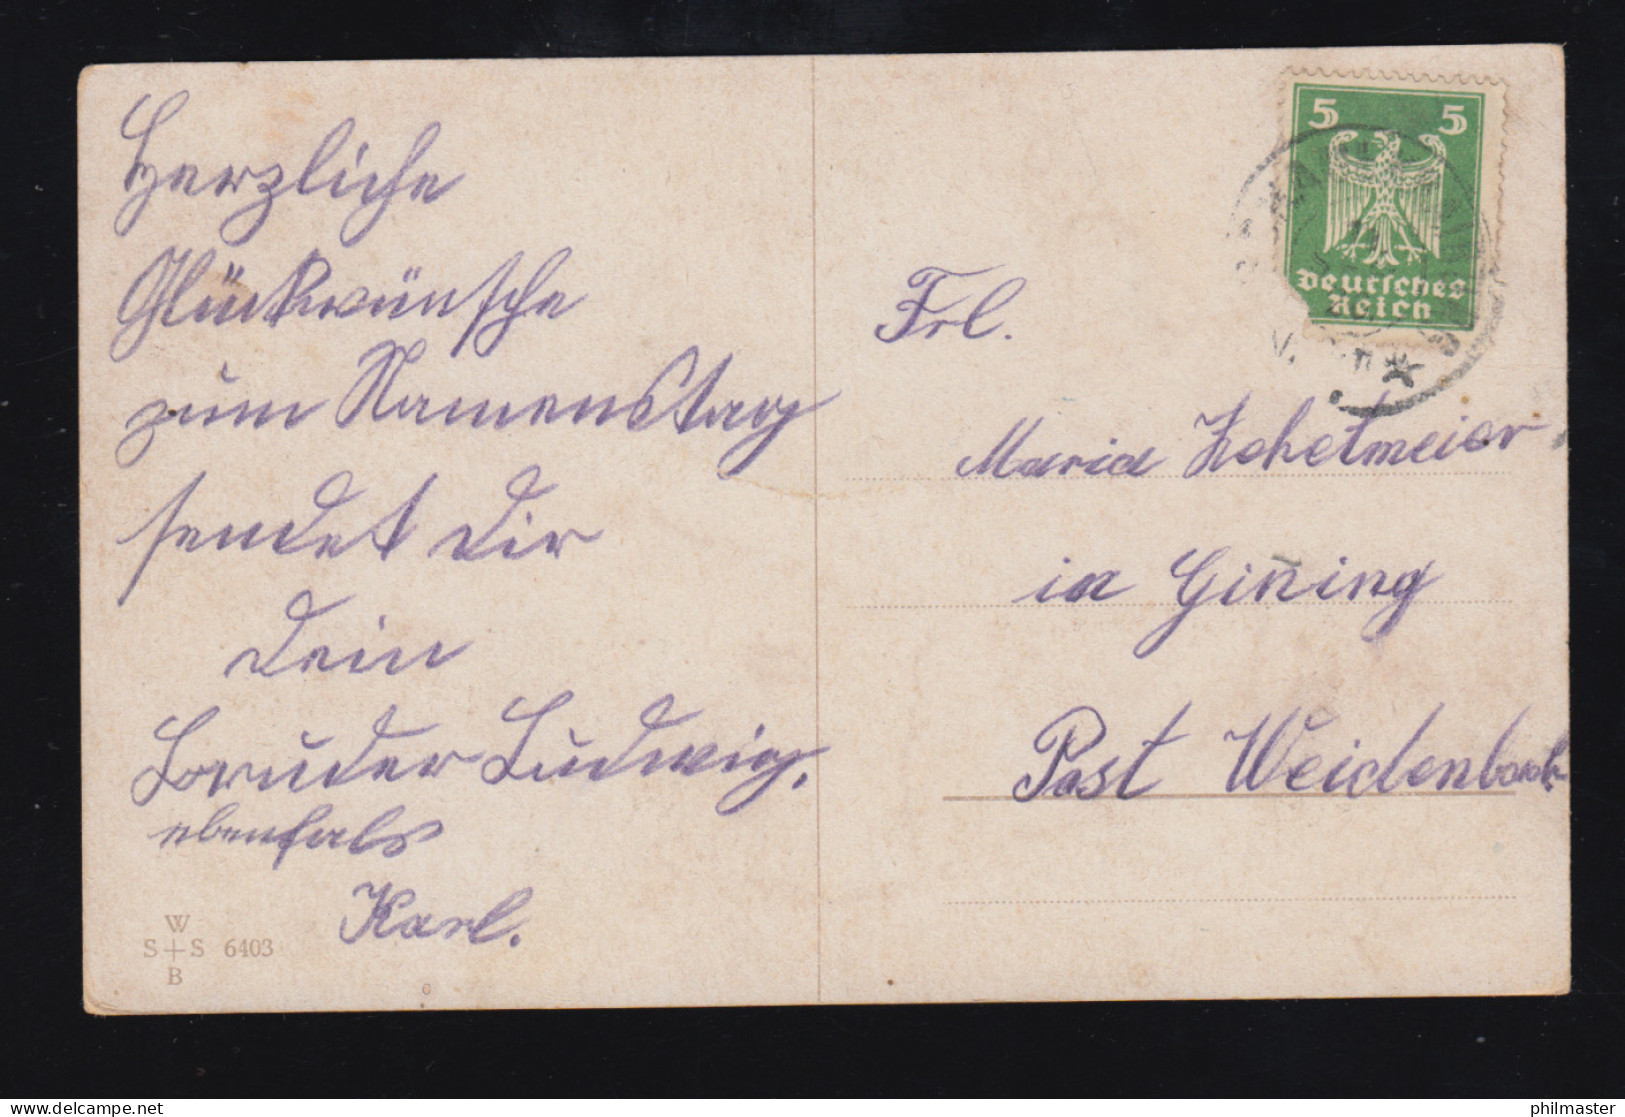 Herzliche
Glückwünsche
zum Namenstag
sendet Dir
Dein
Bruder Ludwig,
ebenfals
Karl.
W
S+S 6403
B
5 5
Deutsches
Reich
Frl.
Maria Zehetmeier,
in Gin̄ing
Post Weidenbach
philmaster